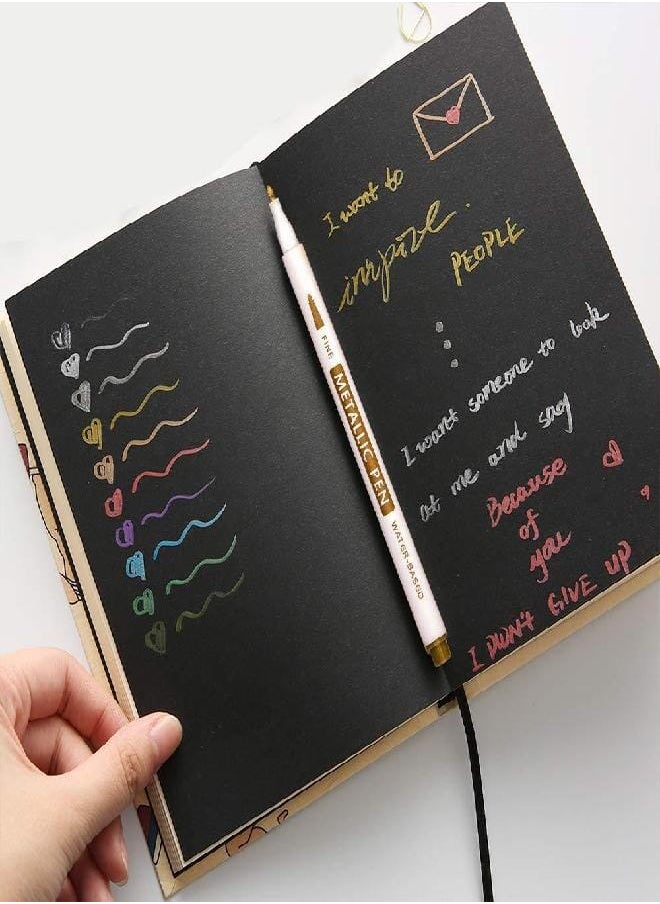 I want to
inspize.
PEOPLE
I want someone to look
at me and say
Because
of
you
I DIDN'T GIVE UP
FINE
METALLIC PEN
WATER-BASED